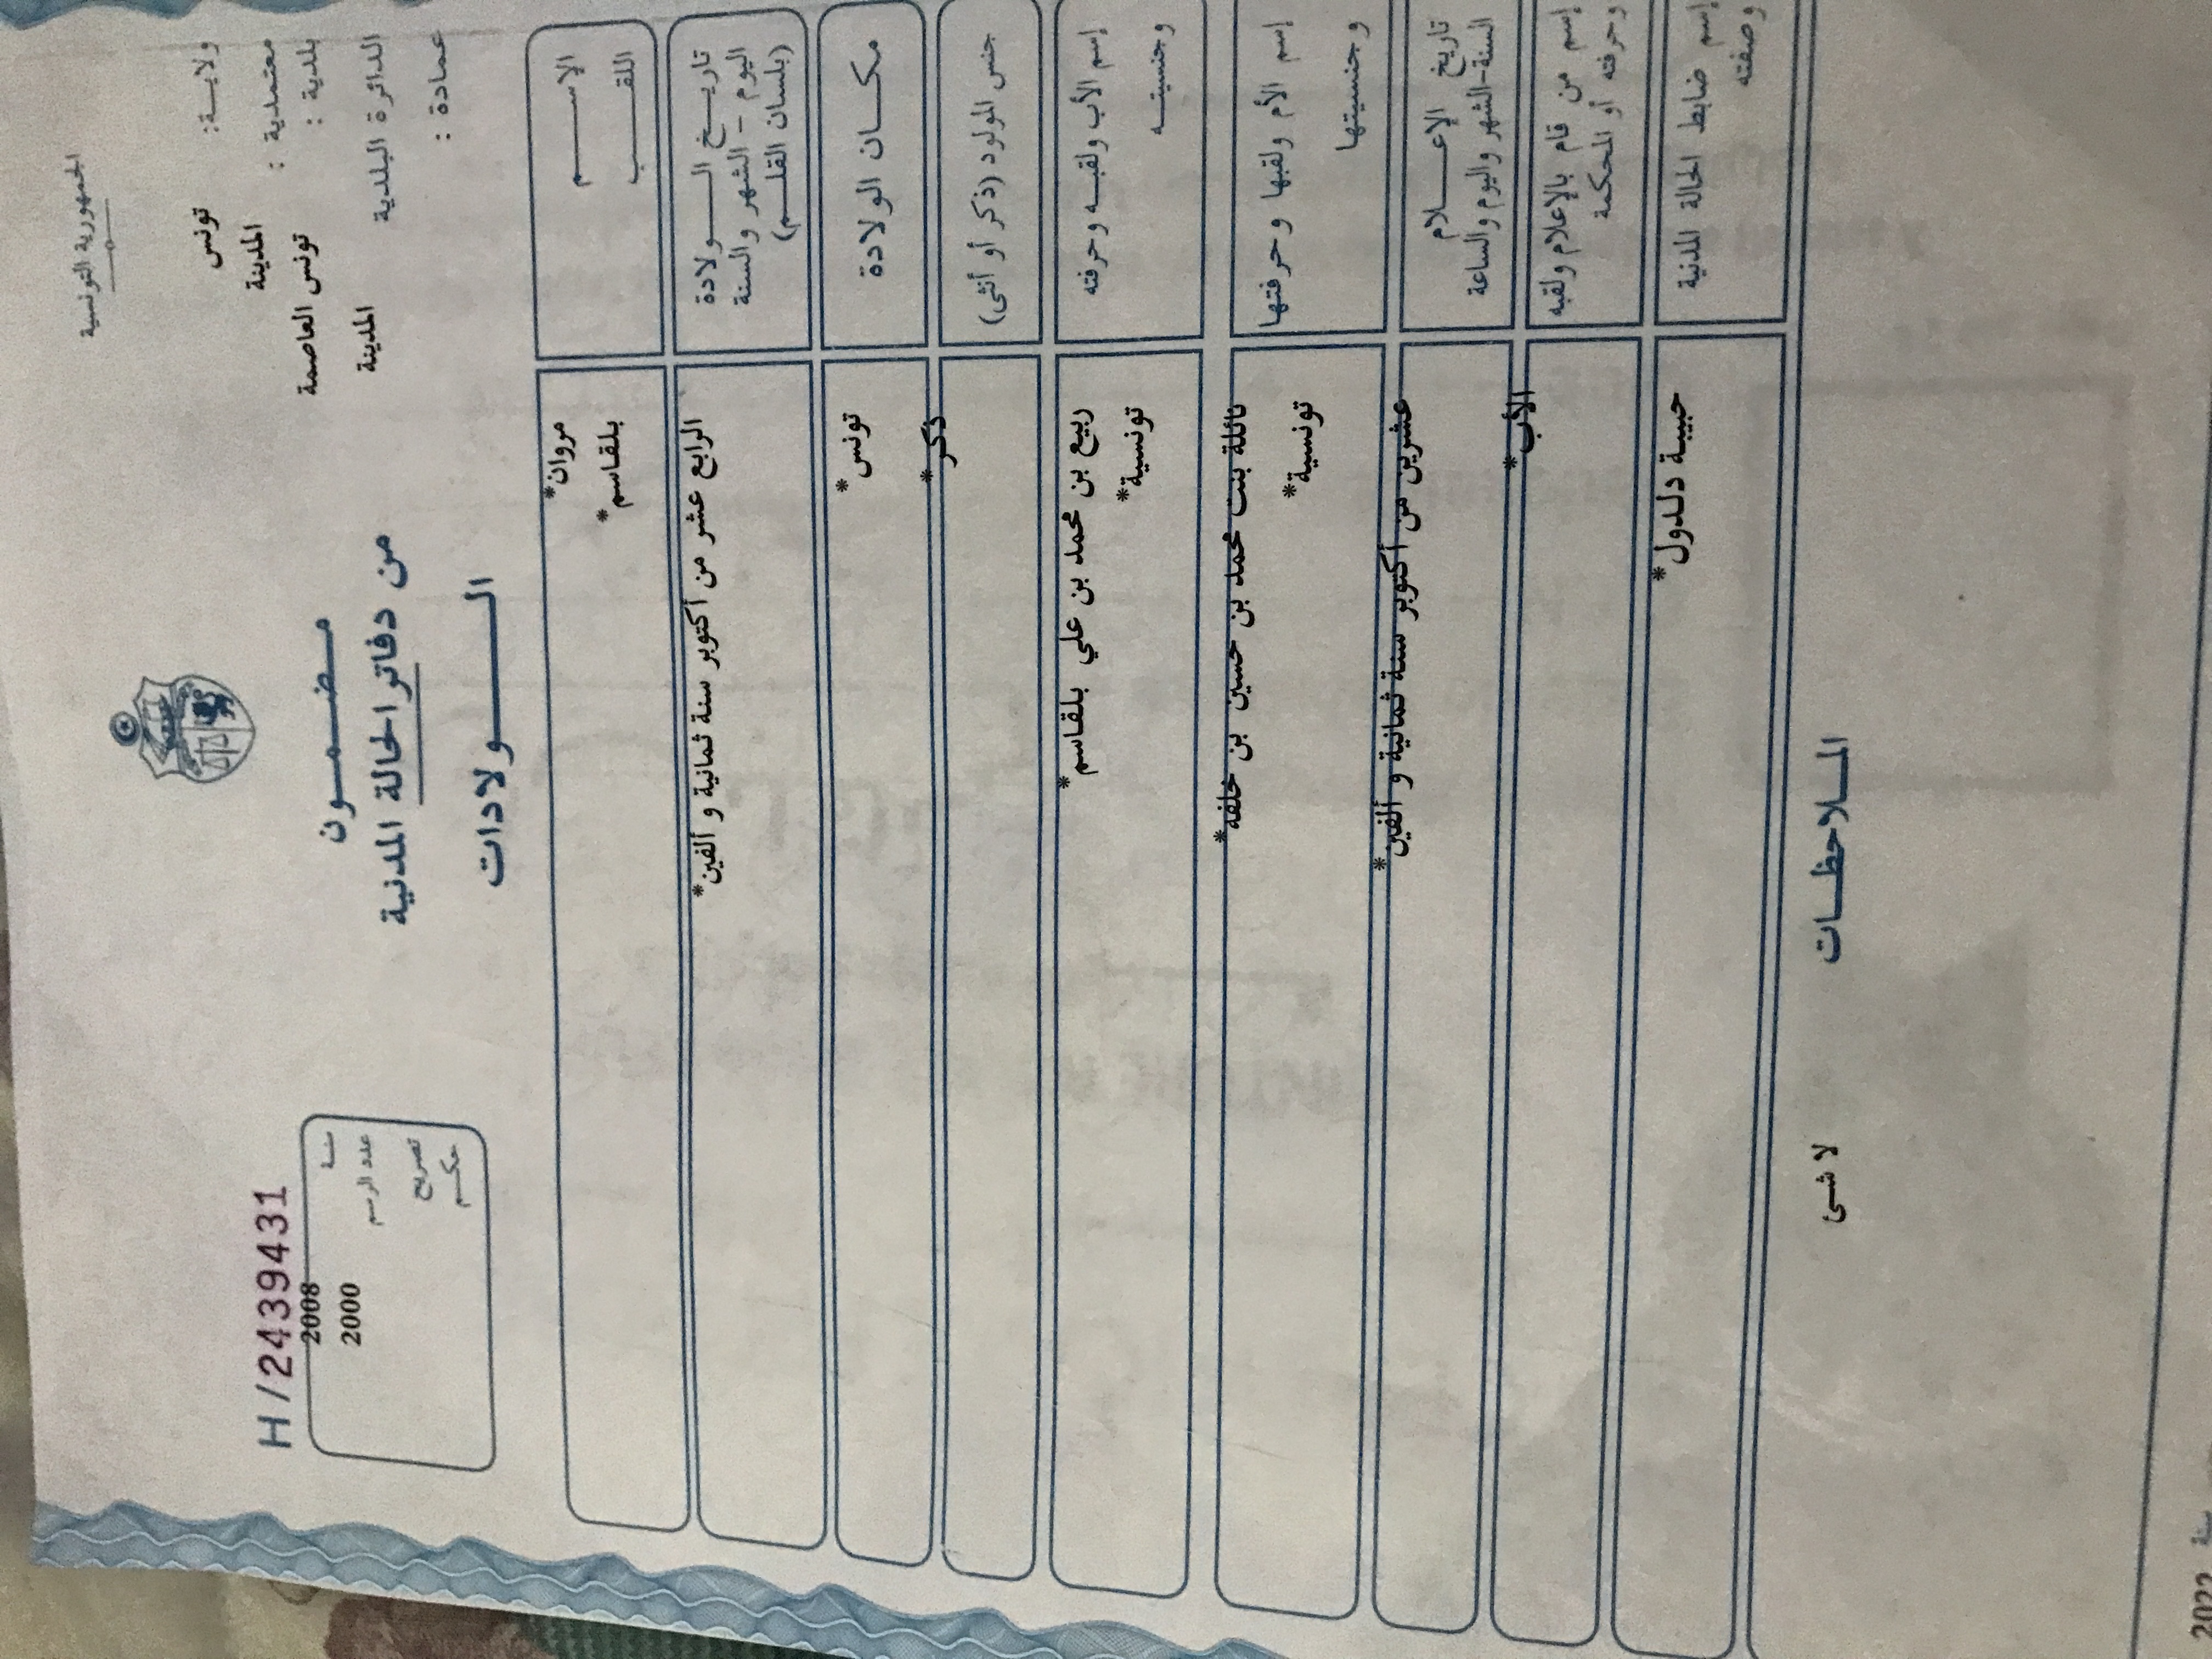 الجمهورية التونسية
ولايـــة: تونس
معتمدية : المدينة
بلدية : تونس العاصمة
الدائرة البلدية المدينة
عمادة :
مـــضـــمـــون
من دفاتر الحالة المدنية
الـــــولادات
H/2439431
سنـة 2008
عدد الرسم 2000
تصريح
حكـم
الإســــم مروان*
اللقـــب بلقاسم*
تاريــخ الـــــولادة
اليوم - الشهر والسنة
(بلسان القلـــم)
الرابع عشر من أكتوبر سنة ثمانية و ألفين*
مكـــان الولادة تونس*
جنس المولود (ذكر أو أنثى) ذكر*
إسم الأب ولقبـــه وحرفته ربيع بن محمد بن علي بلقاسم*
وجنسيتـــه تونسية*
إسم الأم ولقبها وحرفتها نائلة بنت محمد بن حسين بن خلفه*
وجنسيتها تونسية*
تاريخ الإعــــلام
السنة-الشهر واليوم والساعة
عشرين من أكتوبر سنة ثمانية و ألفين*
إسم من قام بالإعلام ولقبه
وحرفته أو المحكمة
الأب*
إسم ضابط الحالة المدنية
وصفته
حبيبة دلدول*
المـــلاحظـــات
لا شئ
سنة 2022